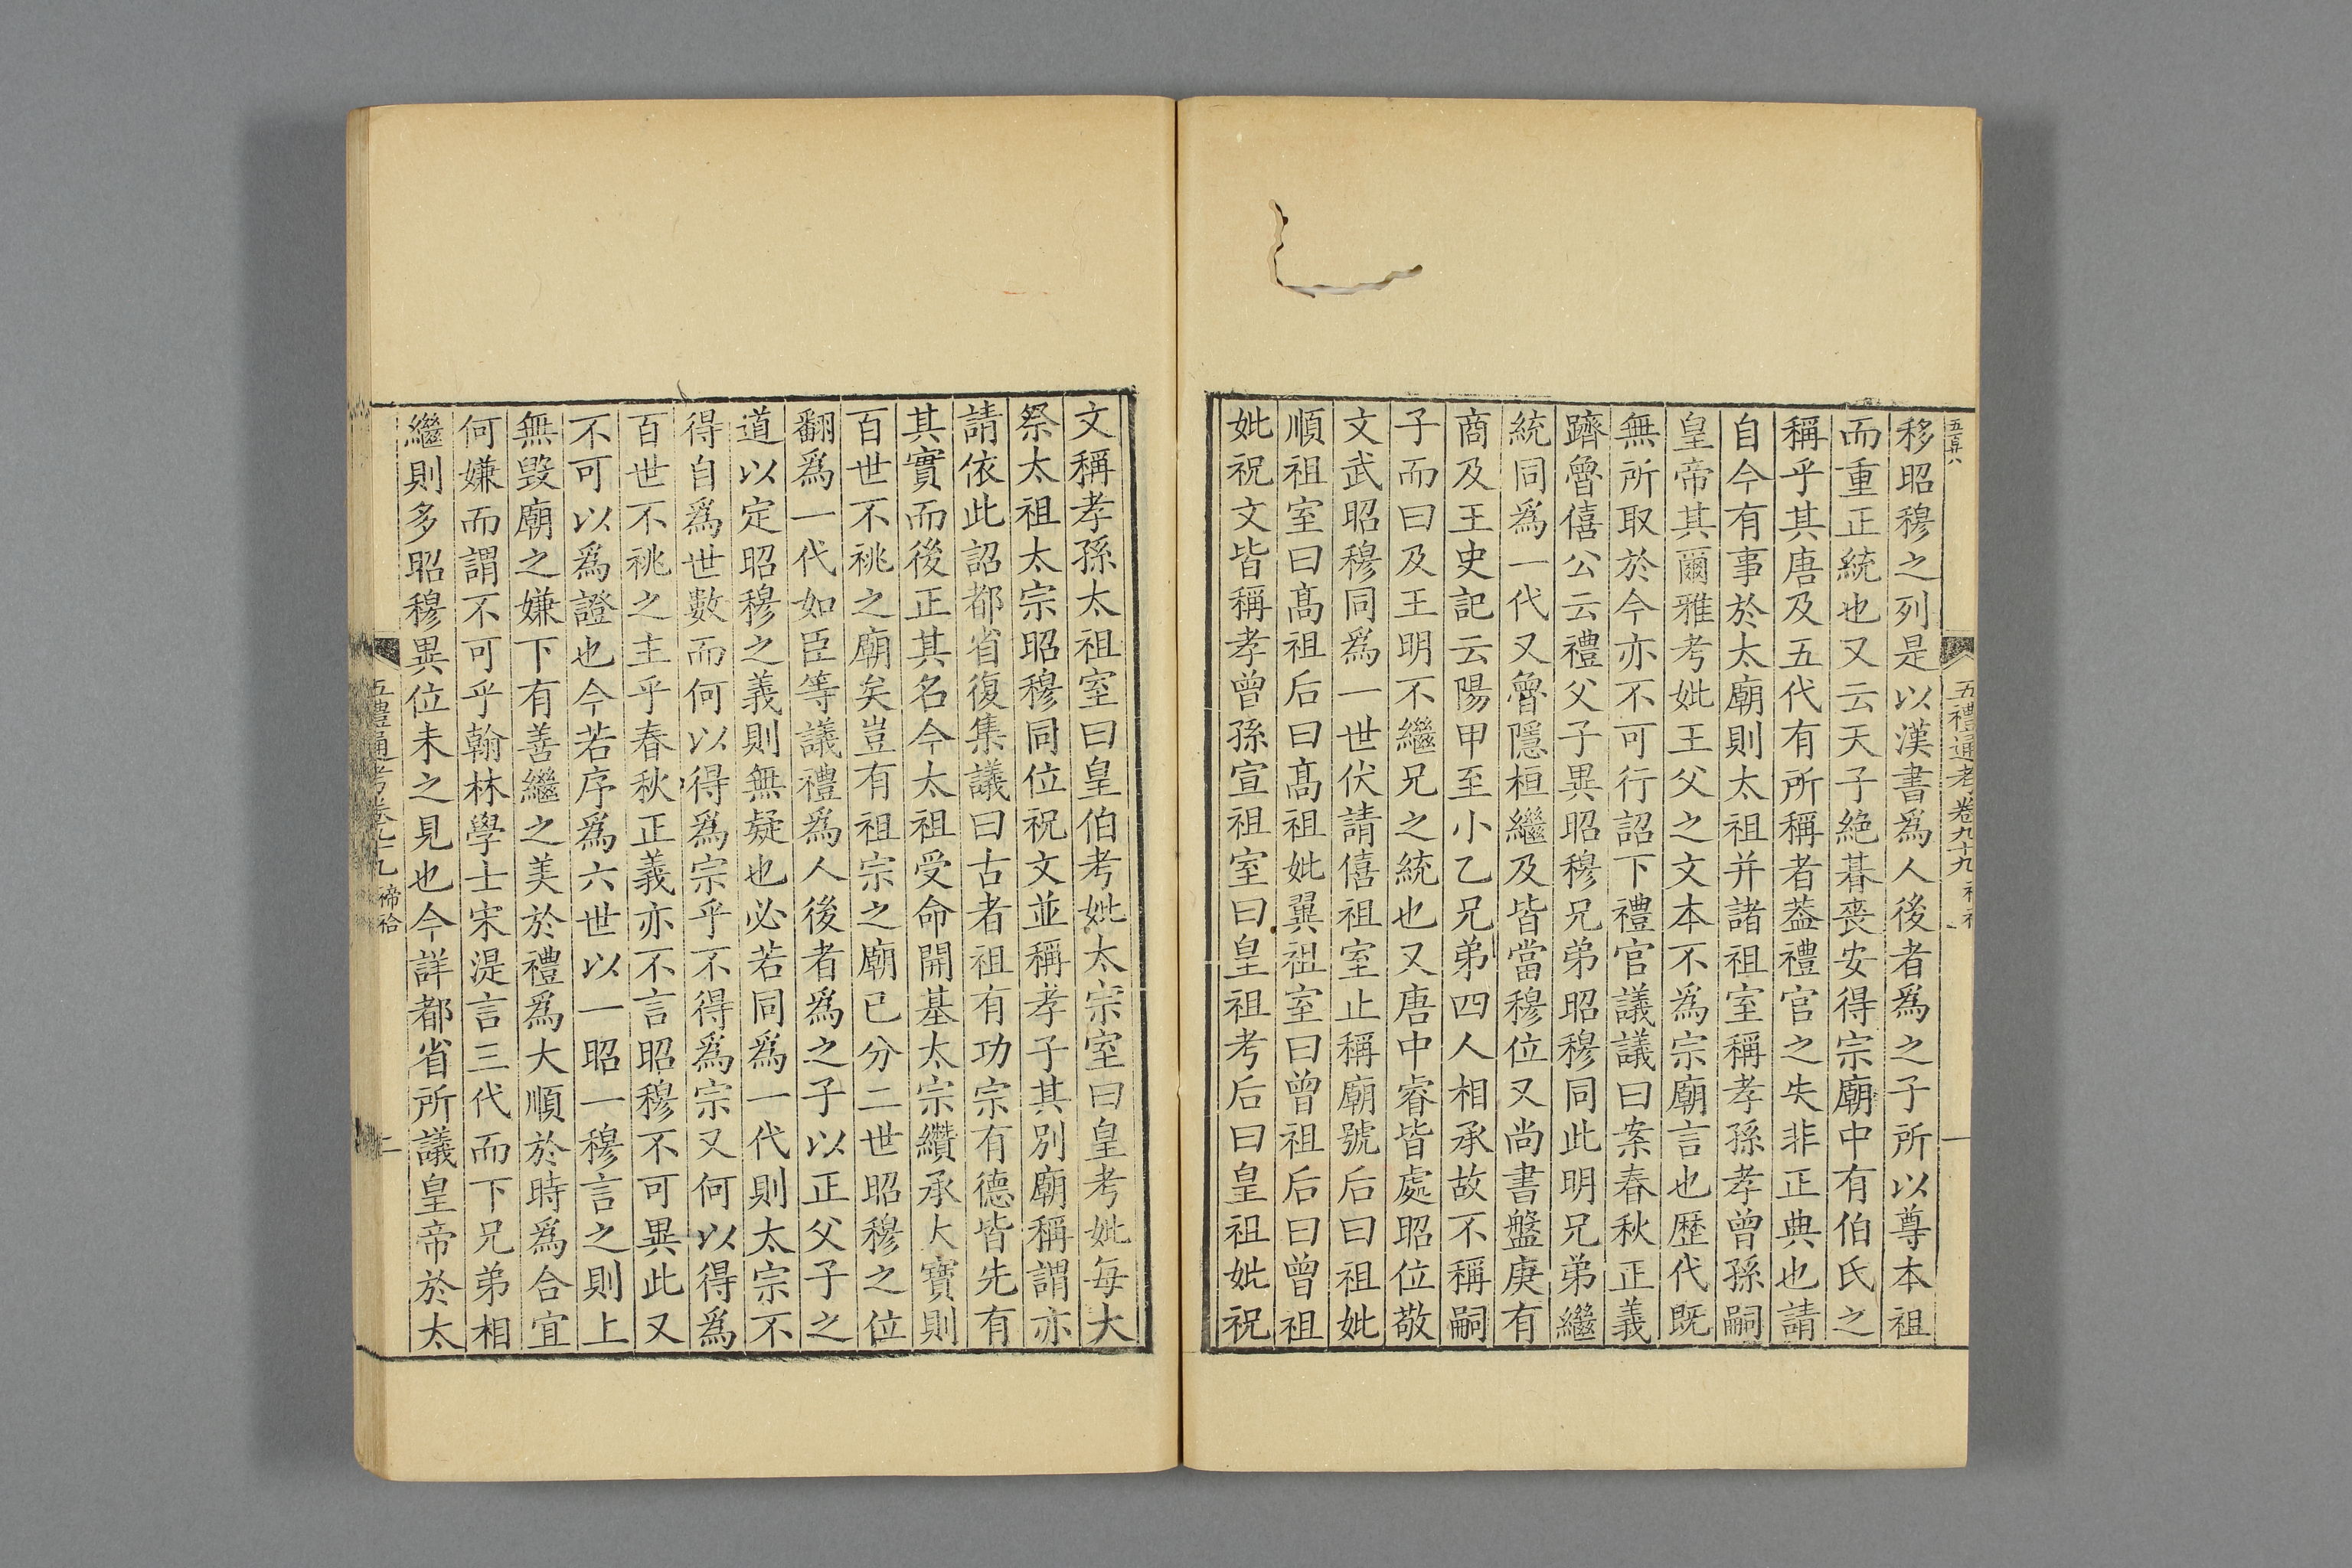 五百廿八
五禮通考卷九十九
移昭穆之列是以漢書爲人後者爲之子所以尊本祖
而重正統也又云天子絶朞喪安得宗廟中有伯氏之
稱乎其唐及五代有所稱者葢禮官之失非正典也請
自今有事於太廟則太祖并諸祖室稱孝孫孝曾孫嗣
皇帝其爾雅考妣王父之文本不爲宗廟言也歴代既
無所取於今亦不可行詔下禮官議議曰案春秋正義
躋魯僖公云禮父子異昭穆兄弟昭穆同此明兄弟繼
統同爲一代又魯隱桓繼及皆當穆位又尚書盤庚有
商及王史記云陽甲至小乙兄弟四人相承故不稱嗣
子而曰及王明不繼兄之統也又唐中睿皆處昭位敬
文武昭穆同爲一世伏請僖祖室止稱廟號后曰祖妣
順祖室曰髙祖后曰髙祖妣翼祖室曰曾祖后曰曾祖
妣祝文皆稱孝曾孫宣祖室曰皇祖考后曰皇祖妣祝
文稱孝孫太祖室曰皇伯考妣太宗室曰皇考妣每大
祭太祖太宗昭穆同位祝文並稱孝子其別廟稱謂亦
請依此詔都省復集議曰古者祖有功宗有德皆先有
其實而後正其名今太祖受命開基太宗纘承大寶則
百世不祧之廟矣豈有祖宗之廟已分二世昭穆之位
翻爲一代如臣等議禮爲人後者爲之子以正父子之
道以定昭穆之義則無疑也必若同爲一代則太宗不
得自爲世數而何以得爲宗乎不得爲宗又何以得爲
百世不祧之主乎春秋正義亦不言昭穆不可異此又
不可以爲證也今若序爲六世以一昭一穆言之則上
無毁廟之嫌下有善繼之美於禮爲大順於時爲合宜
何嫌而謂不可乎翰林學士宋湜言三代而下兄弟相
繼則多昭穆異位未之見也今詳都省所議皇帝於太
五禮通考卷九十九 禘祫
二